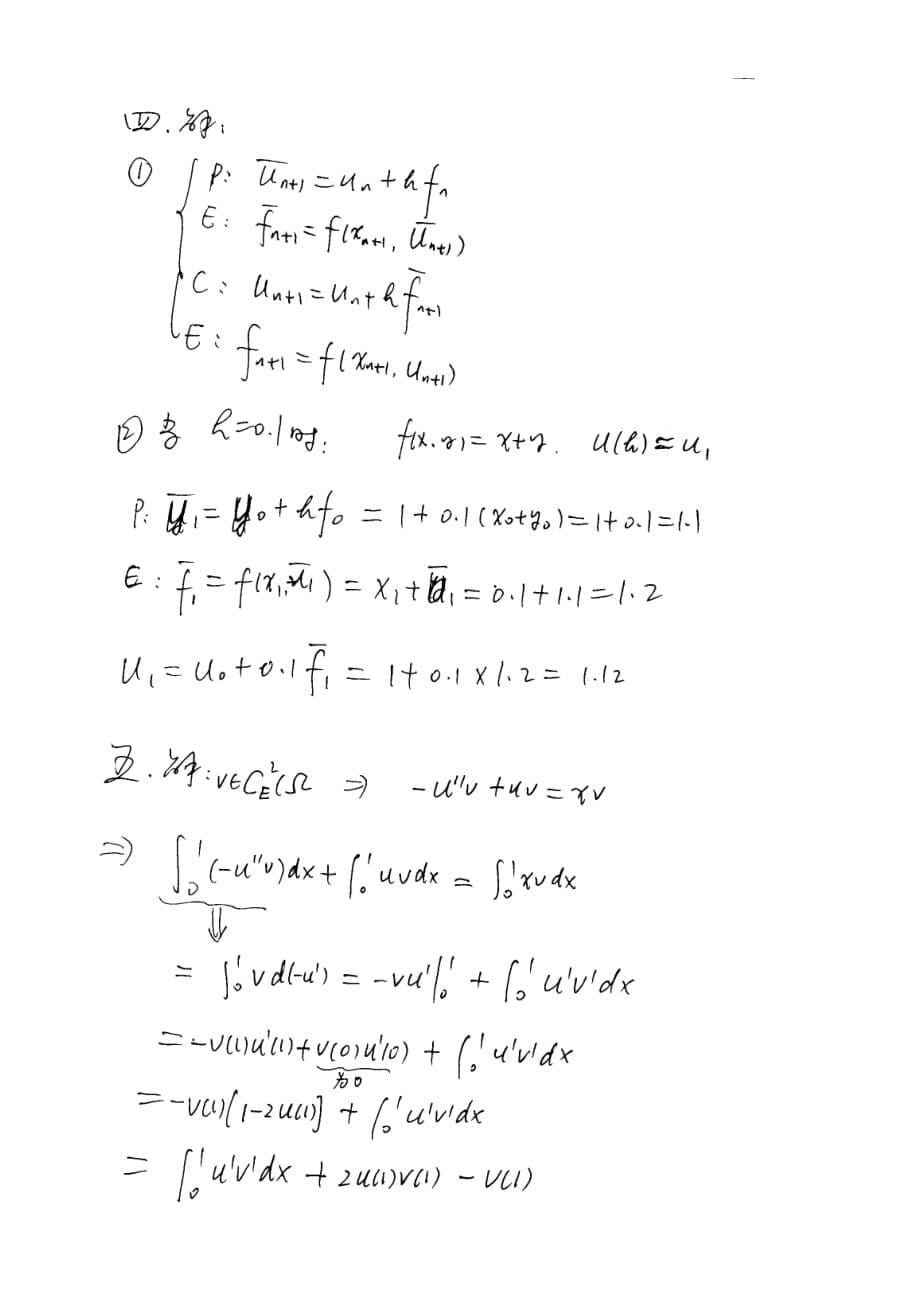 四. 解:
① { P: ū_{n+1} = u_n + h f_n
E: f̄_{n+1} = f(x_{n+1}, ū_{n+1})
C: u_{n+1} = u_n + h f̄_{n+1}
E: f_{n+1} = f(x_{n+1}, u_{n+1})
② 当 h=0.1时: f(x.y) = x+y. u(h) ≈ u₁
P: ȳ₁ = y₀ + hf₀ = 1 + 0.1(x₀+y₀) = 1+0.1 = 1.1
E: f̄₁ = f(x₁, ū₁) = x₁ + ū₁ = 0.1 + 1.1 = 1.2
u₁ = u₀ + 0.1 f̄₁ = 1 + 0.1 × 1.2 = 1.12
五. 解: v∈C_E²(Ω ⇒ -u''v + uv = xv
⇒ ∫₀¹(-u''v)dx + ∫₀¹ uvdx = ∫₀¹ xvdx
⇓
= ∫₀¹ vd(-u') = -vu'|₀¹ + ∫₀¹ u'v'dx
= -v(1)u'(1) + v(0)u'(0) + ∫₀¹ u'v'dx
为0
= -v(1)[1-2u(1)] + ∫₀¹ u'v'dx
= ∫₀¹ u'v'dx + 2u(1)v(1) - v(1)